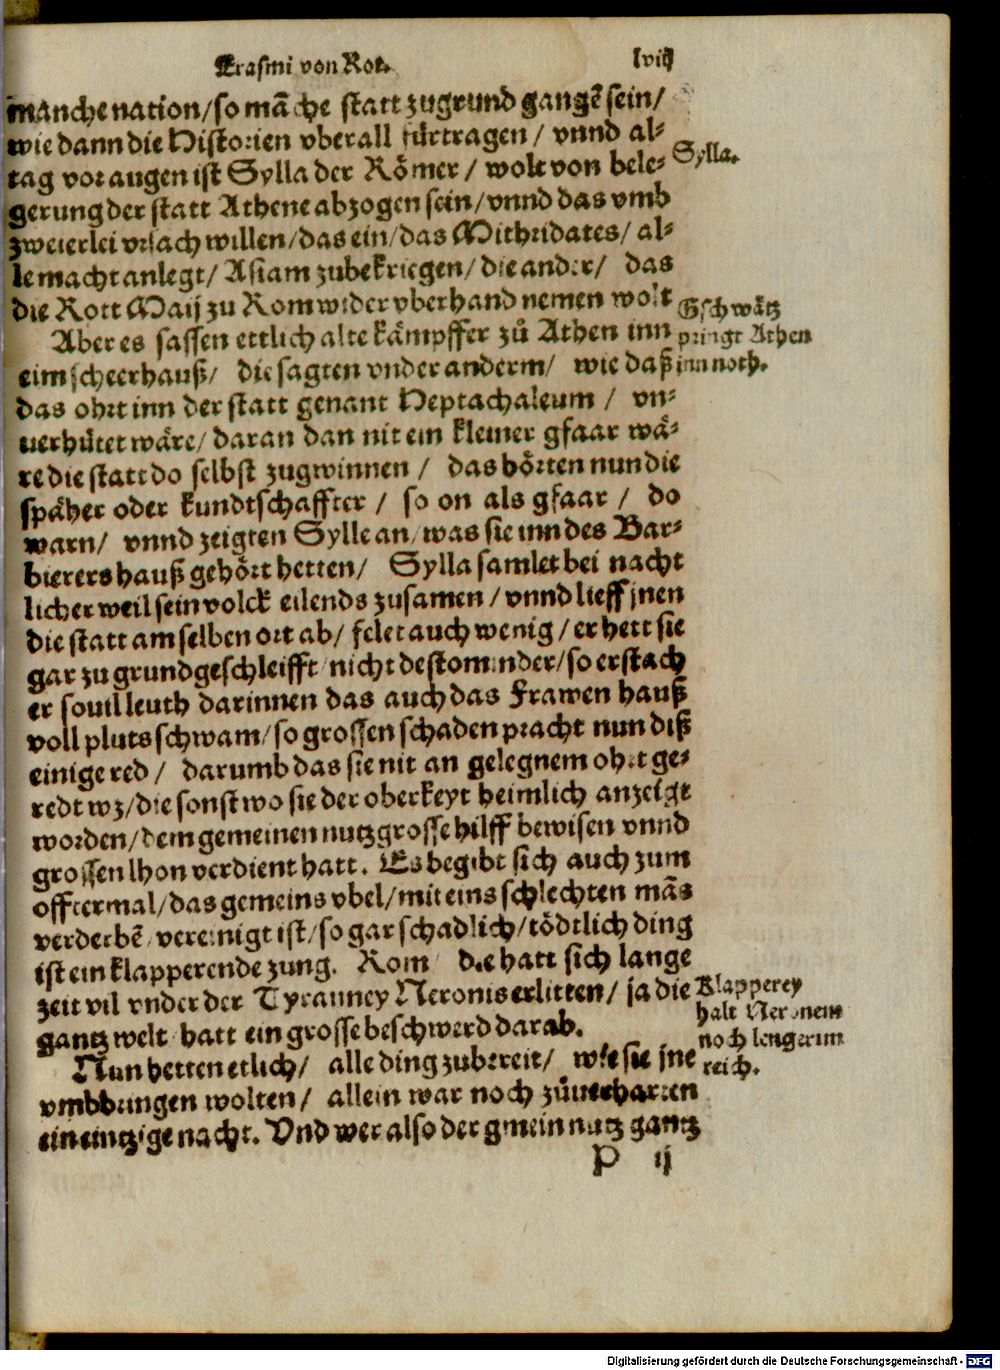 Erasmi von Rot. lviij
manche nation/so mā che statt zugrund gangē sein/
wie dann die Historien vberall fürtragen/ vnnd al⸗
tag vor augen ist Sylla der Römer/ wolt von bele⸗
Sylla.
gerung der statt Athene abzogen sein/vnnd das vmb
zweierlei vrsach willen/das ein/das Mithridates/ al⸗
le macht anlegt/ Asiam zubekriegen/ die ander/ das
die Rott Maij zu Rom wider vberhand nemen wolt
Aber es sassen ettlich alte kämpffer zů Athen inn
Gschwätz
pringt Athen
inn noth.
eim scheerhauß/ die sagten vnder anderm/ wie daß
das ohrt inn der statt genant Heptachaleum/ vn⸗
uerhütet wäre/ daran dan nit ein kleiner gfaar wä⸗
re die statt do selbst zugwinnen/ das hörten nun die
späher oder kundtschaffter/ so on als gfaar/ do
warn/ vnnd zeigten Sylle an/ was sie inn des Bar⸗
bierers hauß gehört hetten/ Sylla samlet bei nacht
licher weil sein volck eilends zusamen/ vnnd lieff jnen
die statt am selben ort ab/ felet auch wenig/ er hett sie
gar zu grund geschleifft/ nicht destominder/ so erstach
er souil leuth darinnen das auch das Frawen hauß
voll pluts schwam/ so grossen schaden pracht nun diß
einige red/ darumb das sie nit an gelegnem ohrt ge⸗
redt wz/ die sonst wo sie der oberkeyt heimlich anzeigt
worden/ dem gemeinen nutz grosse hilff bewisen vnnd
grossen lhon verdient hatt. Es begibt sich auch zum
offtermal/ das gemeins vbel/ mit eins schlechten mās
verderbē/ vereinigt ist/ so gar schadlich/ tödtlich ding
ist ein klapperende zung. Rom die hatt sich lange
zeit vil vnder der Tyranney Neronis erlitten/ ja die
Klapperey
halt Neronem
noch lenger im
reich.
gantz welt hatt ein grosse beschwerd darab.
Nun hetten etlich/ alle ding zubereit/ wie sie jne
vmbbringen wolten/ allein war noch zůuerharren
ein eintzige nacht. Vnd wer also der gmein nutz gantz
P ij
Digitalisierung gefördert durch die Deutsche Forschungsgemeinschaft - DFG